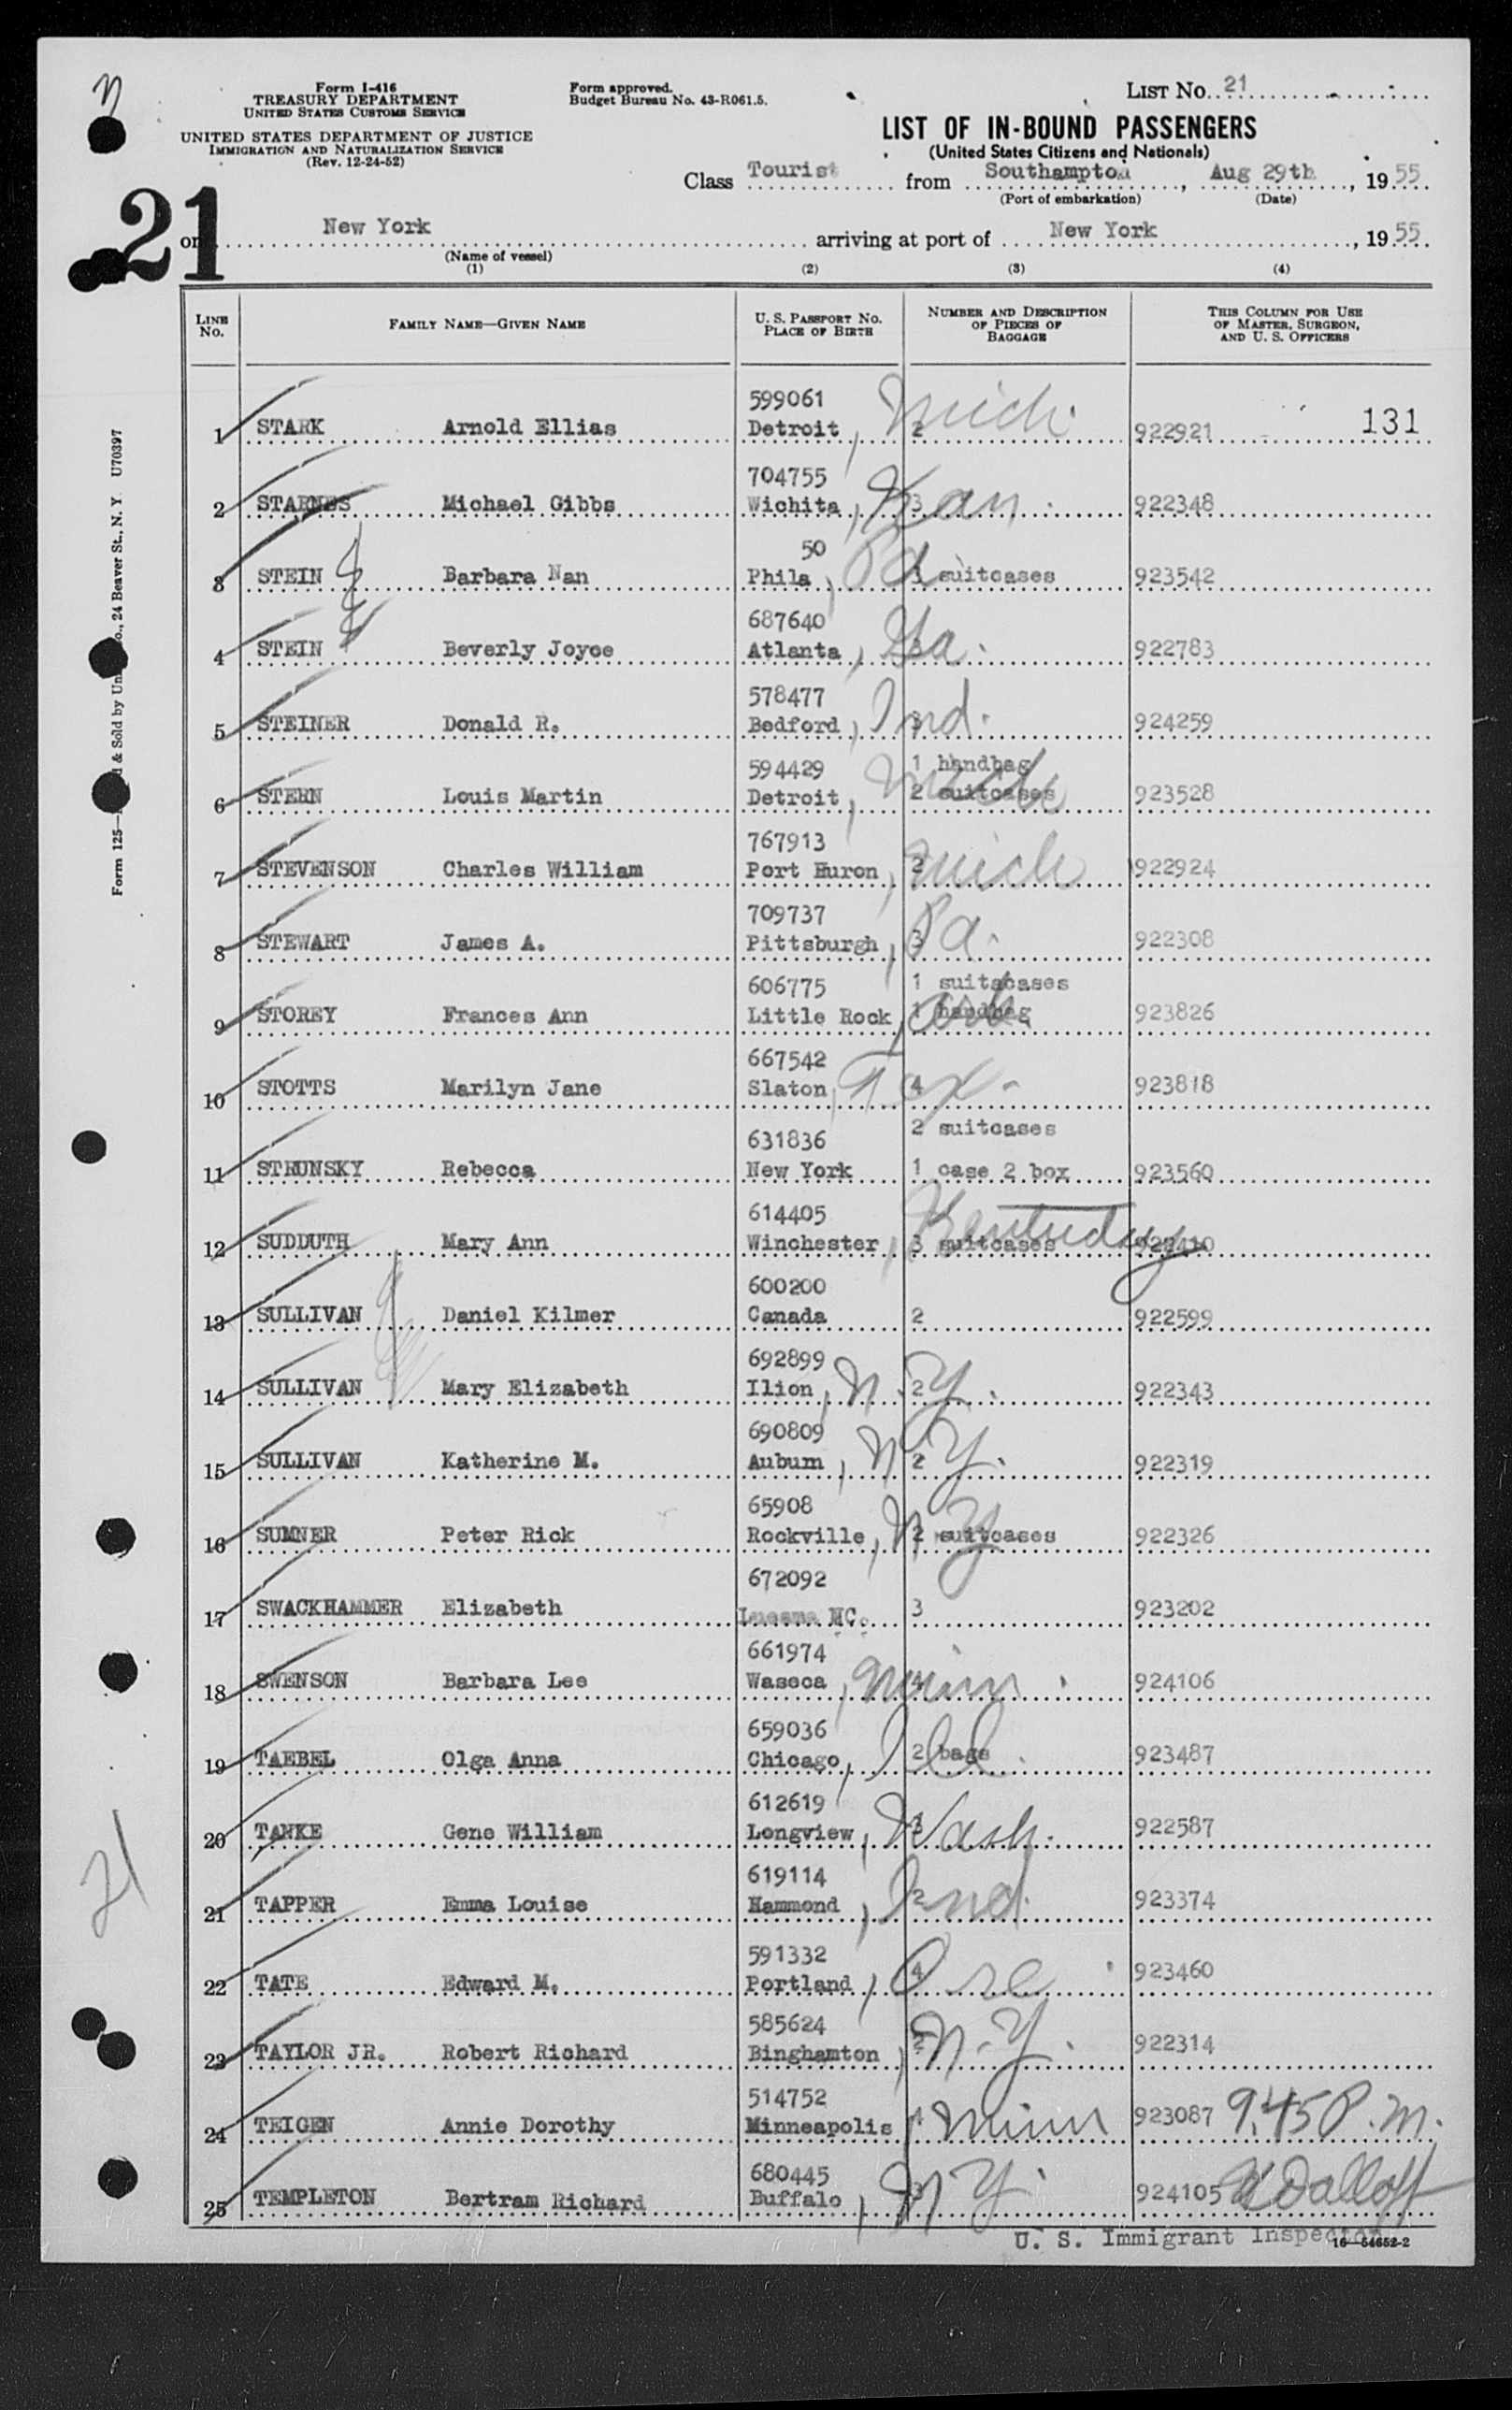 n
Form I-416
TREASURY DEPARTMENT
UNITED STATES CUSTOMS SERVICE
UNITED STATES DEPARTMENT OF JUSTICE
IMMIGRATION AND NATURALIZATION SERVICE
(Rev. 12-24-52)
Form approved.
Budget Bureau No. 43-R061.5.
LIST NO. 21
LIST OF IN-BOUND PASSENGERS
(United States Citizens and Nationals)
Class Tourist from Southampton, Aug 29th, 1955
(Port of embarkation) (Date)
21
on New York arriving at port of New York, 1955
(Name of vessel)
(1) (2) (3) (4)
LINE NO. FAMILY NAME—GIVEN NAME U. S. PASSPORT NO. PLACE OF BIRTH NUMBER AND DESCRIPTION OF PIECES OF BAGGAGE THIS COLUMN FOR USE OF MASTER, SURGEON, AND U. S. OFFICERS
599061
1 STARK Arnold Ellias Detroit, Mich. 2 922921 131
704755
2 STARNES Michael Gibbs Wichita, Kan. 3 922348
50
3 STEIN Barbara Nan Phila, Pa 3 suitcases 923542
687640
4 STEIN Beverly Joyce Atlanta, Ga. 3 922783
578477
5 STEINER Donald R. Bedford, Ind. 924259
594429 1 handbag
6 STERN Louis Martin Detroit, Mich 2 suitcases 923528
767913
7 STEVENSON Charles William Port Huron, Mich 2 922924
709737
8 STEWART James A. Pittsburgh, Pa. 3 922308
606775 1 suitacases
9 STOREY Frances Ann Little Rock, Ark. 1 handbag 923826
667542
10 STOTTS Marilyn Jane Slaton, Tex. 4 923818
631836 2 suitcases
11 STRUNSKY Rebecca New York 1 case 2 box 923560
614405
12 SUDDUTH Mary Ann Winchester, Kentucky 3 suitcases
600200
13 SULLIVAN Daniel Kilmer Canada 2 922599
692899
14 SULLIVAN Mary Elizabeth Ilion, N.Y. 2 922343
690809
15 SULLIVAN Katherine M. Auburn, N.Y. 2 922319
65908
16 SUMNER Peter Rick Rockville, N Y 2 suitcases 922326
672092
17 SWACKHAMMER Elizabeth 3 923202
661974
18 SWENSON Barbara Lee Waseca, Minn. 924106
659036
19 TAEBEL Olga Anna Chicago, Ill. 2 bags 923487
612619
20 TANKE Gene William Longview, Wash. 3 922587
619114
21 TAPPER Emma Louise Hammond, Ind. 2 923374
591332
22 TATE Edward M. Portland, Ore 4 923460
585624
23 TAYLOR JR. Robert Richard Binghamton, N.Y. 2 922314
514752
24 TEIGEN Annie Dorothy Minneapolis, Minn 4 923087 9.45 P.M.
680445
25 TEMPLETON Bertram Richard Buffalo, N Y. 3 924105
U. S. Immigrant Inspector
16—54652-2
21
Form 125— & Sold by Un Co., 24 Beaver St., N. Y. U70397